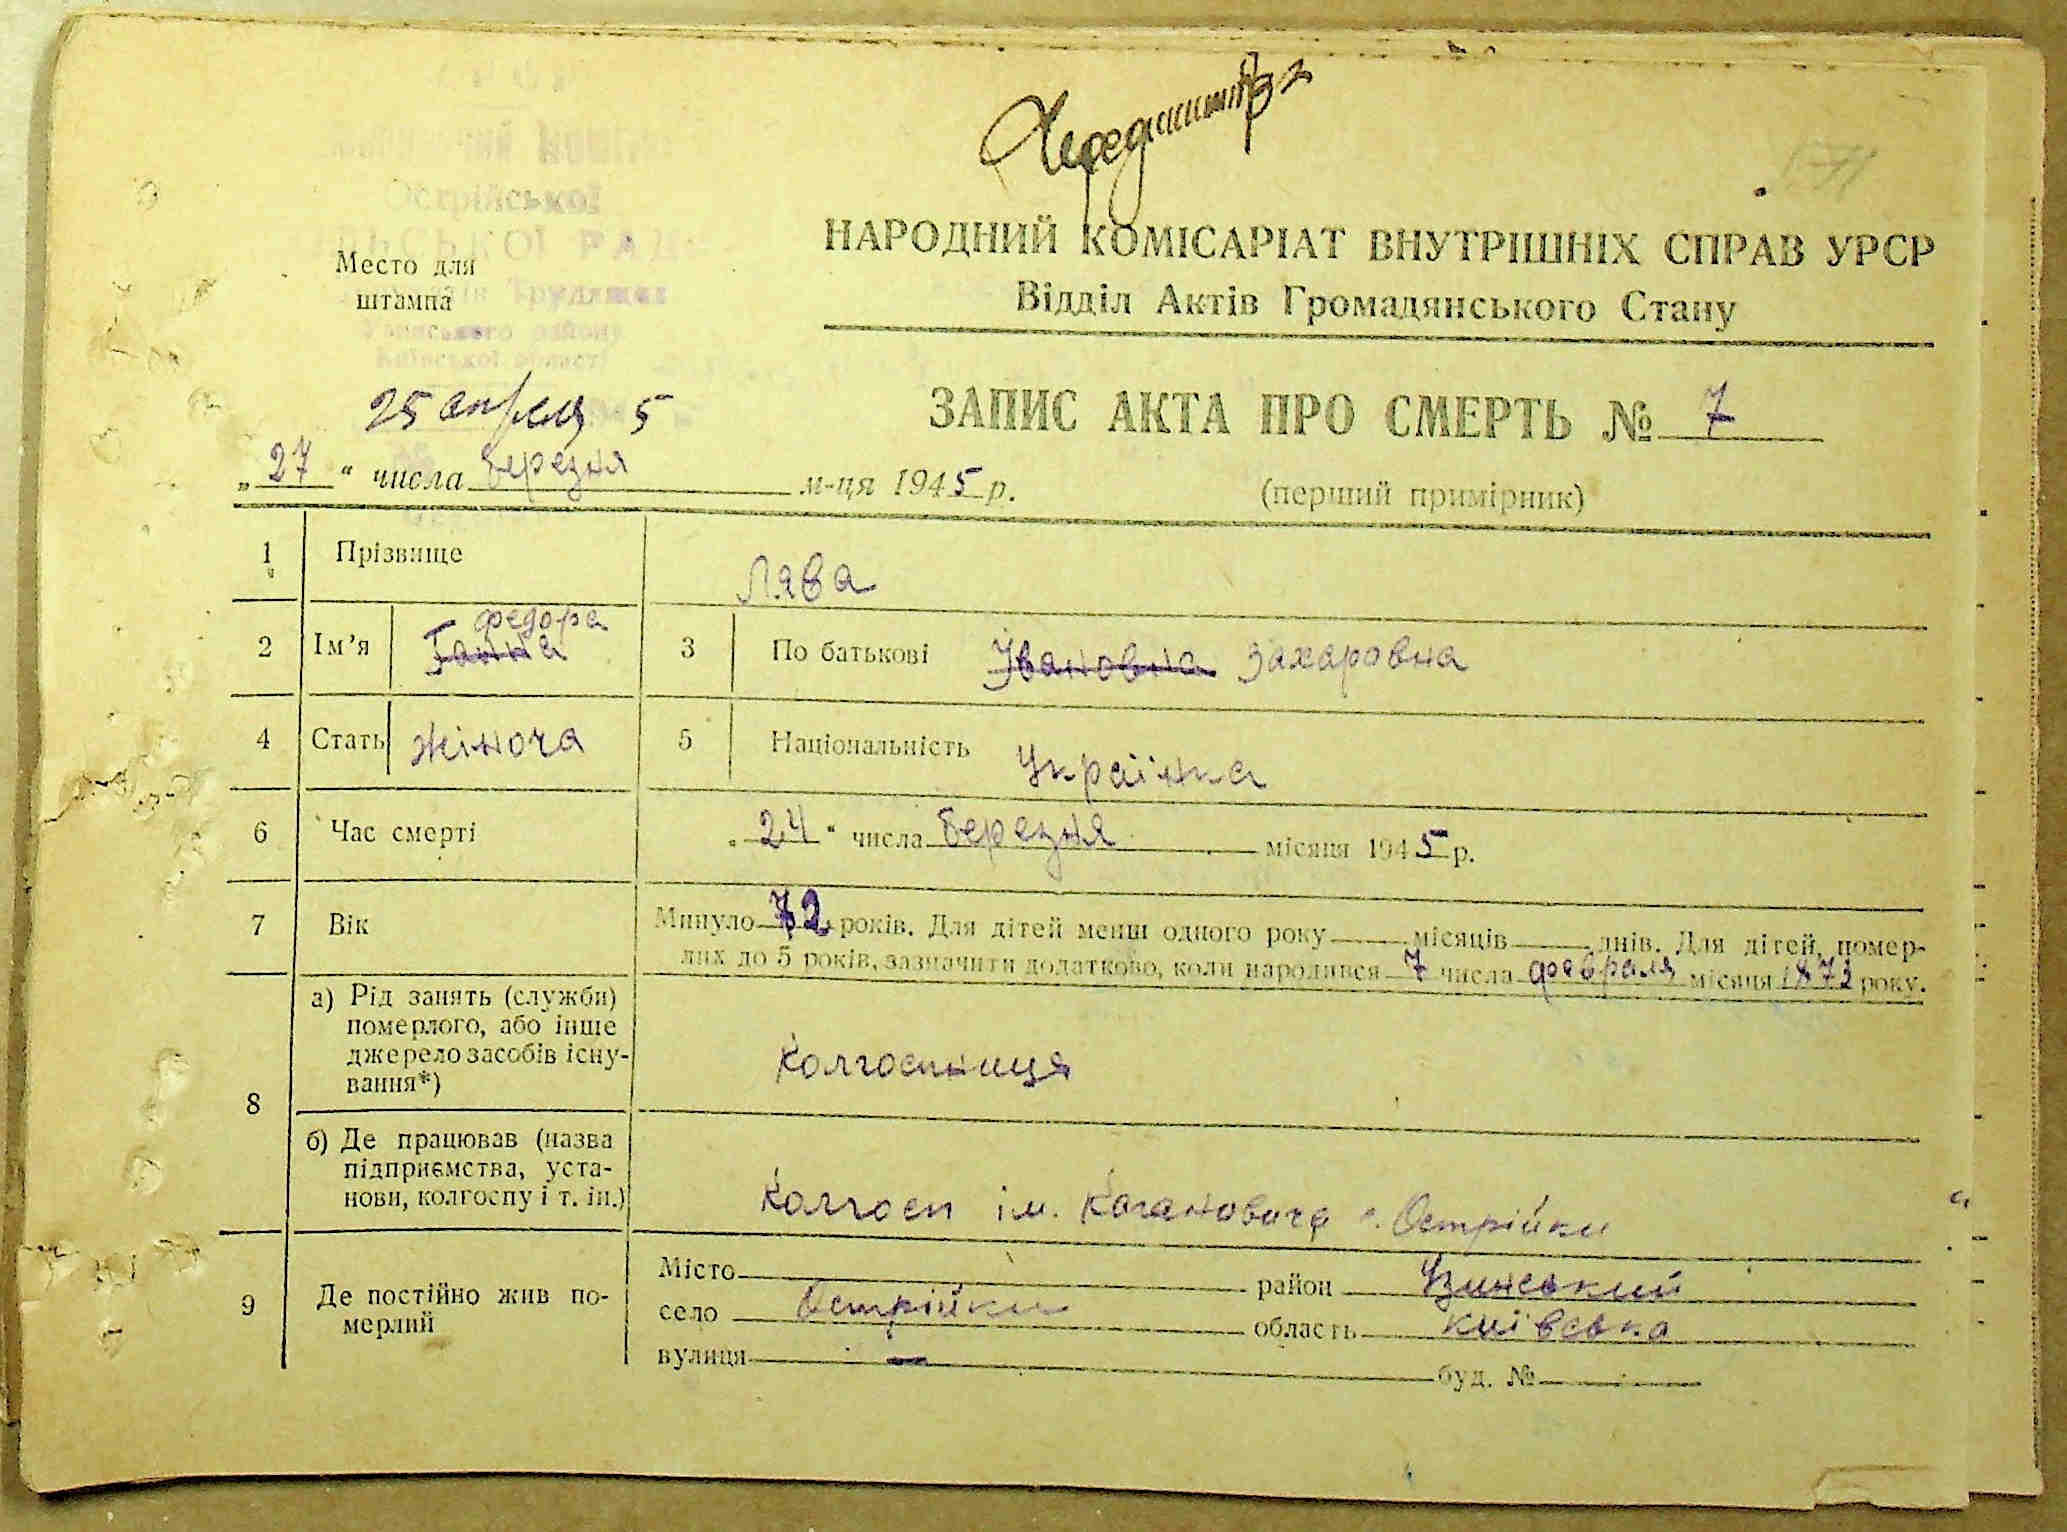 Острійської
Место для
штампа
Київської області
НАРОДНИЙ КОМІСАРІАТ ВНУТРІШНІХ СПРАВ УРСР
Відділ Актів Громадянського Стану
25 апреля 5
ЗАПИС АКТА ПРО СМЕРТЬ № 7
„27“ числа березня м-ця 1945 р.
(перший примірник)
1 Прізвище Лява
федора
2 Ім'я Ганна 3 По батькові Івановна Захаровна
4 Стать жіноча 5 Національність Українка
6 Час смерті „24“ числа березня місяця 1945 р.
7 Вік Минуло 72 років. Для дітей менш одного року місяців днів. Для дітей, помер-
лих до 5 років, зазначити додатково, коли народився 7 числа февраля місяця 1873 року.
8 а) Рід занять (служби)
померлого, або інше
джерело засобів існу-
вання*)
колгоспниця
б) Де працював (назва
підприємства, уста-
нови, колгоспу і т. ін.)
Колгосп ім. Кагановича с. Острійки
9 Де постійно жив по-
мерлий
Місто район Узинський
село Острійки область київська
вулиця — буд. №